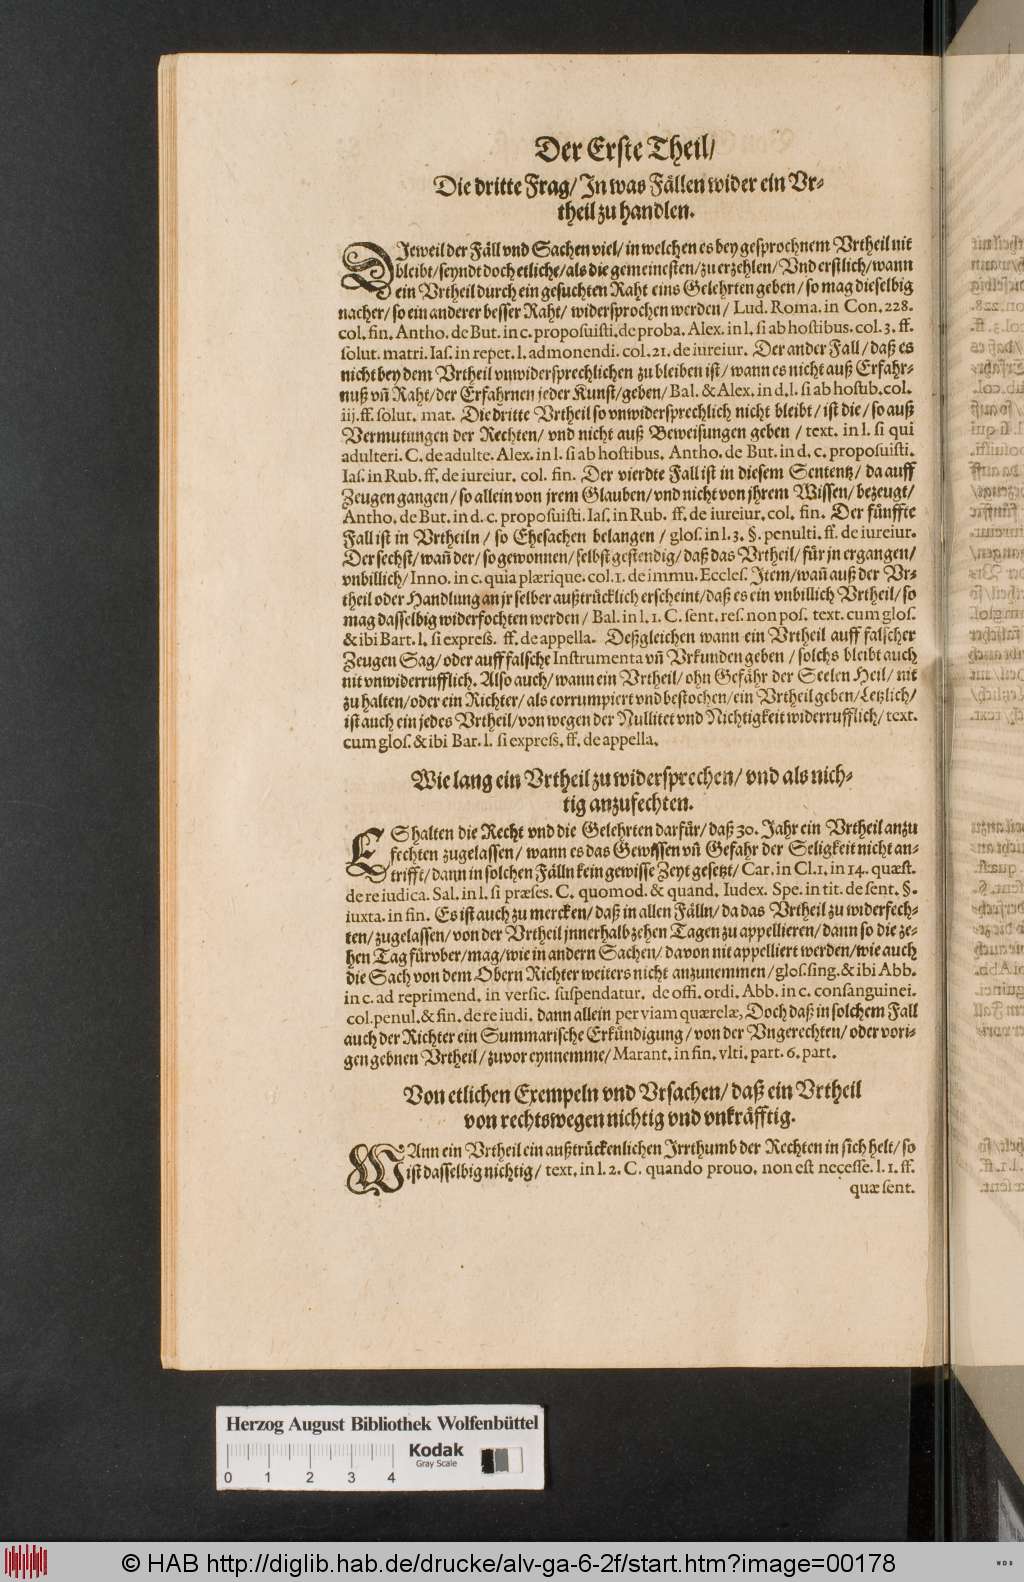 Der Erste Theil/
Die dritte Frag/ In was Fällen wider ein Vr-
theil zu handlen.
DJeweil der Fäll vnd Sachen viel/ in welchen es bey gesprochnem Vrtheil nit
bleibt/ seyndt doch etliche/ als die gemeinesten/ zu erzehlen/ Vnd erstlich/ wann
ein Vrtheil durch ein gesuchten Raht eins Gelehrten geben/ so mag dieselbig
nacher/ so ein anderer besser Raht/ widersprochen werden/ Lud. Roma. in Con. 228.
col. fin. Antho. de But. in c. proposuisti. de proba. Alex. in l. si ab hostibus. col. 3. ff.
solut. matri. Ias. in repet. l. admonendi. col. 21. de iureiur. Der ander Fall/ daß es
nicht bey dem Vrtheil vnwidersprechlichen zu bleiben ist/ wann es nicht auß Erfahr-
nuß vñ Raht/ der Erfahrnen jeder Kunst/ geben/ Bal. & Alex. in d. l. si ab hostub. col.
iij. ff. solut. mat. Die dritte Vrtheil so vnwidersprechlich nicht bleibt/ ist die/ so auß
Vermutungen der Rechten/ vnd nicht auß Beweisungen geben/ text. in l. si qui
adulteri. C. de adulte. Alex. in l. si ab hostibus. Antho. de But. in d. c. proposuisti.
Ias. in Rub. ff. de iureiur. col. fin. Der vierdte Fall ist in diesem Sententz/ da auff
Zeugen gangen/ so allein von jrem Glauben/ vnd nicht von jhrem Wissen/ bezeugt/
Antho. de But. in d. c. proposuisti. Ias. in Rub. ff. de iureiur. col. fin. Der fünffte
Fall ist in Vrtheiln/ so Ehesachen belangen/ glos. in l. 3. §. penulti. ff. de iureiur.
Der sechst/ wañ der/ so gewonnen/ selbst gestendig/ daß das Vrtheil/ für jn ergangen/
vnbillich/ Inno. in c. quia plærique. col. 1. de immu. Eccles. Item/ wañ auß der Vr-
theil oder Handlung an jr selber außtrücklich erscheint/ daß es ein vnbillich Vrtheil/ so
mag dasselbig widerfochten werden/ Bal. in l. 1. C. sent. res. non pos. text. cum glos.
& ibi Bart. l. si express. ff. de appella. Deßgleichen wann ein Vrtheil auff falscher
Zeugen Sag/ oder auff falsche Instrumenta vñ Vrkunden geben/ solchs bleibt auch
nit vnwiderrufflich. Also auch/ wann ein Vrtheil/ ohn Gefähr der Seelen Heil/ nit
zu halten/ oder ein Richter/ als corrumpiert vnd bestochen/ ein Vrtheil geben/ Letzlich/
ist auch ein jedes Vrtheil/ von wegen der Nullitet vnd Nichtigkeit widerrufflich/ text.
cum glos. & ibi Bar. l. si express. ff. de appella.
Wie lang ein Vrtheil zu widersprechen/ vnd als nich-
tig anzufechten.
ES halten die Recht vnd die Gelehrten darfür/ daß 30. Jahr ein Vrtheil anzu
fechten zugelassen/ wann es das Gewissen vñ Gefahr der Seligkeit nicht an-
trifft/ dann in solchen Fälln kein gewisse Zeyt gesetzt/ Car. in Cl. 1, in 14. quæst.
de re iudica. Sal. in l. si præses. C. quomod. & quand. Iudex. Spe. in tit. de sent. §.
iuxta. in fin. Es ist auch zu mercken/ daß in allen Fälln/ da das Vrtheil zu widerfech-
ten/ zugelassen/ von der Vrtheil jnnerhalb zehen Tagen zu appellieren/ dann so die ze-
hen Tag fürvber/ mag/ wie in andern Sachen/ davon nit appelliert werden/ wie auch
die Sach von dem Obern Richter weiters nicht anzunemmen/ glos. sing. & ibi Abb.
in c. ad reprimend. in versic. suspendatur. de offi. ordi. Abb. in c. consanguinei.
col. penul. & fin. de re iudi. dann allein per viam quærelæ, Doch daß in solchem Fall
auch der Richter ein Summarische Erkündigung/ von der Vngerechten/ oder vori-
gen gebnen Vrtheil/ zuvor eynnemme/ Marant. in fin. vlti. part. 6. part.
Von etlichen Exempeln vnd Vrsachen/ daß ein Vrtheil
von rechtswegen nichtig vnd vnkräfftig.
WAnn ein Vrtheil ein außtrückenlichen Irrthumb der Rechten in sich helt/ so
ist dasselbig nichtig/ text. in l. 2. C. quando prouo. non est necesse. l. 1. ff.
quæ sent.
Herzog August Bibliothek Wolfenbüttel
0 1 2 3 4
Kodak
Gray Scale
© HAB http://diglib.hab.de/drucke/alv-ga-6-2f/start.htm?image=00178
WDB